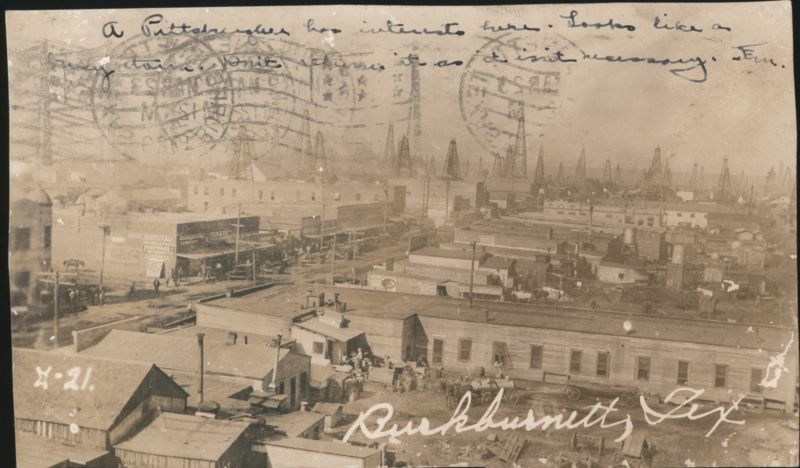 A Pittsburgher has interests here. Looks like a
Don't return it as it isn't necessary. Em.
Z-21.
Burkburnett, Tex